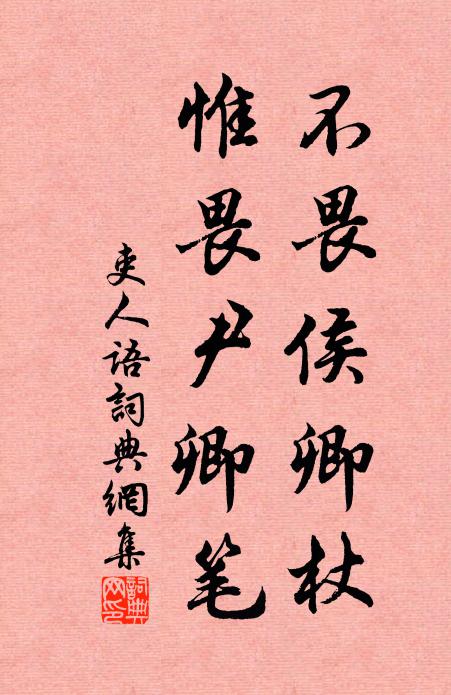 不畏侯卿杖
惟畏尹卿笔
吏人语詞典網集
詞典網印